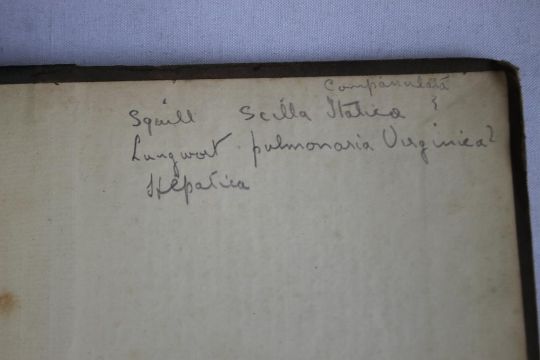 Companulata
Squill Scilla Italica ?
Lungwort . pulmonaria Virginica?
Hepatica